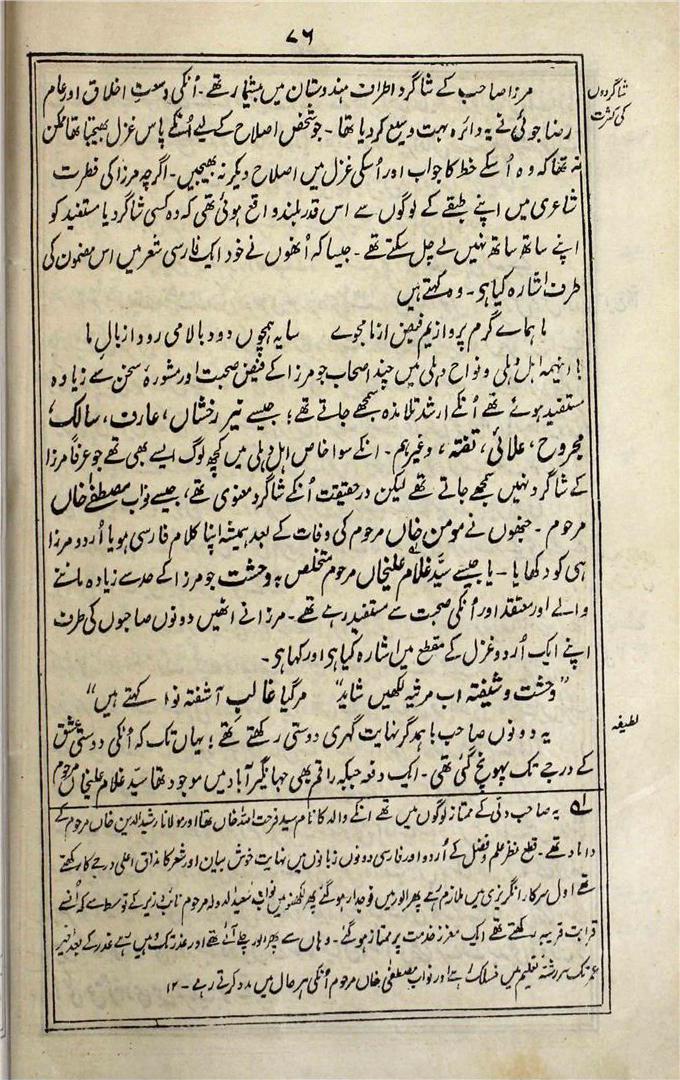 ۷۶
شاگردوں
کی کثرت
مرزا صاحب کے شاگرد اطراف ہندوستان میں بیشمار تھے۔ اُنکی وسعتِ اخلاق اور عام
رضا جوئی نے یہ دائرہ بہت وسیع کر دیا تھا۔ جو شخص اصلاح کے لیے اُنکے پاس غزل بھیجتا تھا ممکن
نہ تھا کہ وہ اُسکے خط کا جواب اور اُسکی غزل میں اصلاح دیکر نہ بھیجیں۔ اگرچہ مرزا کی فطرت
شاعری میں اپنے طبقے کے لوگوں سے اس قدر بلند واقع ہوئی تھی کہ وہ کسی شاگرد یا مستفید کو
اپنے ساتھ ساتھ نہیں لے چل سکتے تھے۔ جیسا کہ اُنھوں نے خود ایک فارسی شعر میں اس مضمون کی
طرف اشارہ کیا ہی۔ وہ کہتے ہیں
ما ہماے گرم پروازیم فیض از ما مجوے سایہ ہمچوں دود بالا می رود از بالِ ما
با اینہمہ اہل دہلی و نواح دہلی میں چند اصحاب جو مرزا کے فیض صحبت اور مشورۂ سخن سے زیادہ
مستفید ہوئے تھے اُنکے ارشد تلامذہ سمجھے جاتے تھے؛ جیسے نیر رخشاں، عارف، سالک،
مجروح، علائی، تفتہ، وغیرہم۔ انکے سوا خاص اہل دہلی میں کچھ لوگ ایسے بھی تھے جو عرفاً مرزا
کے شاگرد نہیں سمجھے جاتے تھے لیکن درحقیقت اُنکے شاگرد معنوی تھے، جیسے نواب مصطفےٰ خاں
مرحوم۔ جنھوں نے مومن خاں مرحوم کی وفات کے بعد ہمیشہ اپنا کلام فارسی ہو یا اُردو مرزا
ہی کو دکھایا۔ یا جیسے سیّد غلام علیخاں مرحوم متخلص بہ وحشت جو مرزا کے حد سے زیادہ ماننے
والے اور معتقد اور اُنکی صحبت سے مستفید رہے تھے۔ مرزا نے انھیں دونوں صاحبوں کی طرف
اپنے ایک اُردو غزل کے مقطع میں اشارہ کیا ہی اور کہا ہی۔
"وحشت و شیفتہ اب مرثیہ لکھیں شاید" مرگیا غالب آشفتہ نوا کہتے ہیں"
لطیفہ
یہ دونوں صاحب باہمدگر نہایت گہری دوستی رکھتے تھے؛ یہاں تک کہ اُنکی دوستی عشق
کے درجے تک پہونچ گئی تھی۔ ایک دفعہ جبکہ راقم بھی جہانگیرآباد میں موجود تھا سیّد غلام علیخاں مرحوم
لے یہ صاحب دلّی کے ممتاز لوگوں میں تھے انکے والد کا نام سید فرحت اللہ خاں تھا اور مولانا رشید الدین خاں مرحوم کے
داماد تھے۔ قطع نظر علم و فضل کے اُردو اور فارسی دونوں زبانوں میں نہایت خوش بیان اور شعر کا مذاق اعلیٰ درجے کا رکھتے
تھے اول سرکار انگریزی میں ملازم رہے پھر الور میں فوجدار ہوگئے پھر لکھنو میں نواب سعید الدولہ مرحوم نائب وزیر کے توسط سے کہ اُنسے
قرابت قریبہ رکھتے تھے ایک معزز خدمت پر ممتاز ہوگئے۔ وہاں سے پھر الور چلے آئے تھے اور غدر تک وہیں رہے غدر کے بعد اخیر
عمر تک سررشتہ تعلیم میں منسلک رہے اور نواب مصطفٰی خاں مرحوم اُنکی ہر حال میں مدد کرتے رہے۔ ۱۲